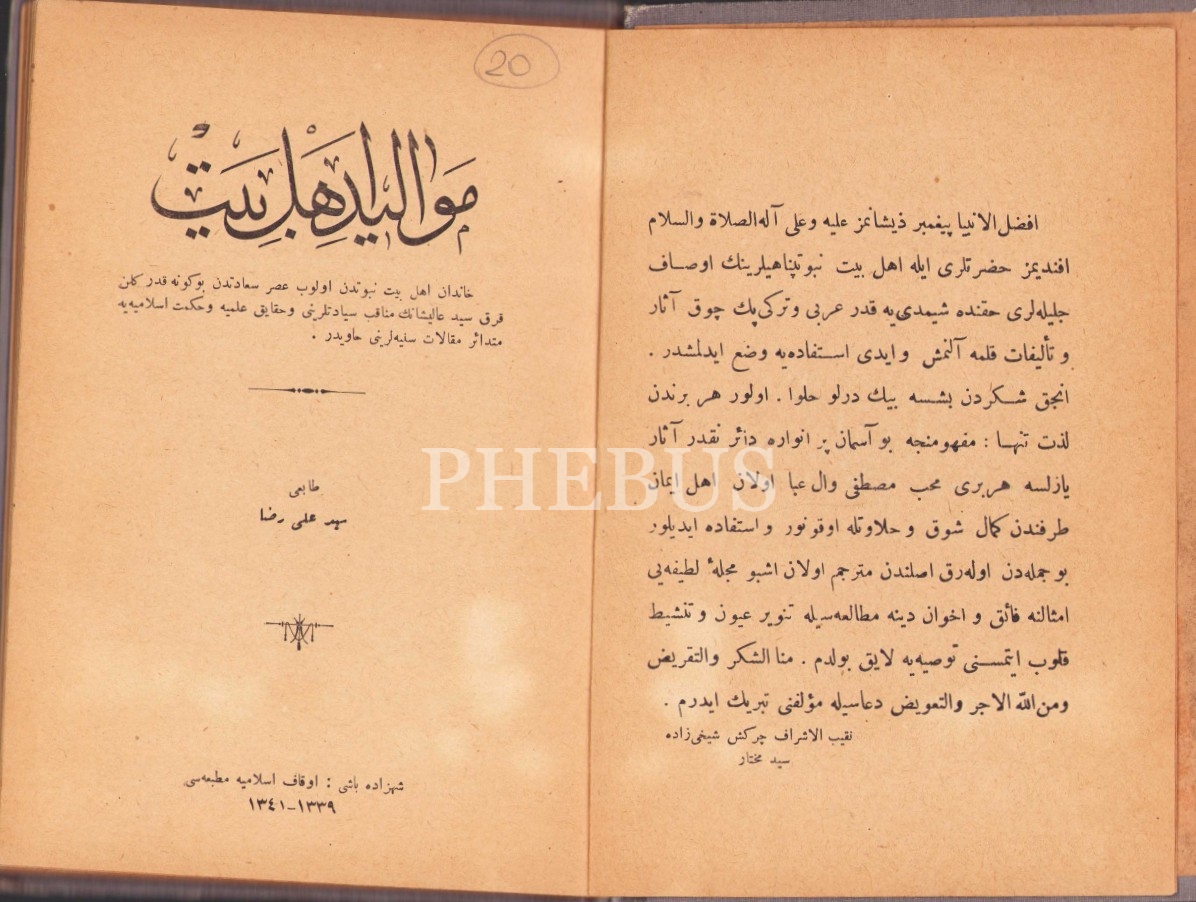 20
مواليد اهل بيت
خاندان اهل بيت نبوتدن اولوب عصر سعادتدن بوكونه قدر كلن
فرق سيد عاليشانك مناقب سيادتلرينى وحقايق علميه وحكمت اسلاميه‌يه
متدائر مقالات سنيه‌لرينى حاويدر .
طابعى
سيد على رضا
شهزاده باشى : اوقاف اسلاميه مطبعه‌سى
١٣٣٩–١٣٤١
افضل الانبيا پيغمبر ذيشانمز عليه وعلى آله الصلاة والسلام
افنديمز حضرتلرى ايله اهل بيت نبوتپناهيلرينك اوصاف
جليله‌لرى حقنده شيمدى‌يه قدر عربى وتركى پك چوق آثار
و تأليفات قلمه آلنمش وايدى استفاده‌يه وضع ايدلمشدر .
انجق شكردن بشسه بيك درلو حلوا . اولور هر برندن
لذت تنها : مفهومنجه بو آسمان پر انواره دائر نقدر آثار
يازلسه هربرى محب مصطفى وال عبا اولان اهل ايمان
طرفندن كمال شوق و حلاوتله اوقونور و استفاده ايديلور
بو جمله‌دن اوله‌رق اصلندن مترجم اولان اشبو مجلهٔ لطيفه‌يى
امثالنه فائق و اخوان دينه مطالعه‌سيله تنوير عيون و تنشيط
قلوب ايتمسنى توصيه‌يه لايق بولدم . منا الشكر والتقريض
ومن الله الاجر والتعويض دعاسيله مؤلفنى تبريك ايدرم .
نقيب الاشراف چركش شيخى زاده
سيد مختار
PHEBUS